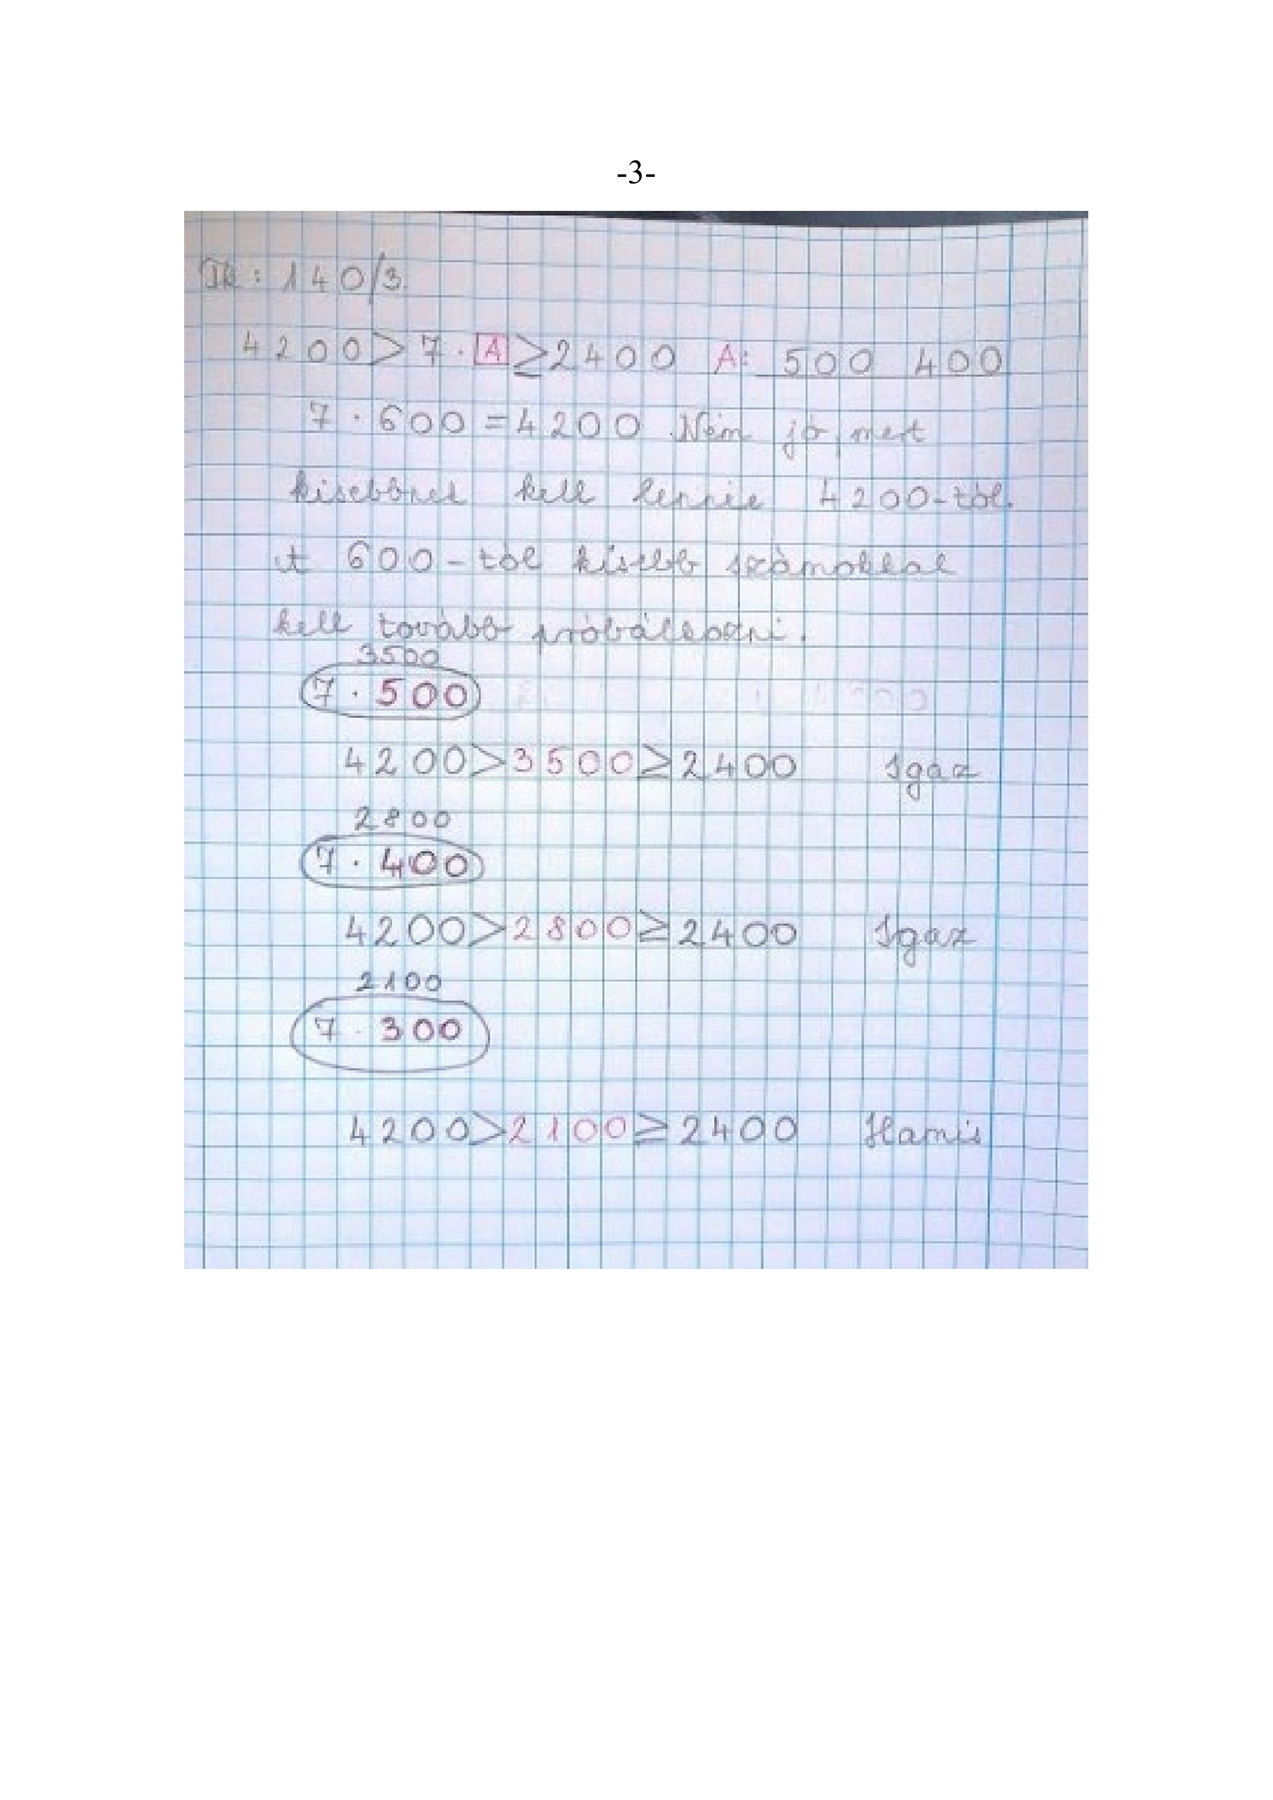 -3-
Tk: 140/3.
4200 > 7 · A ≥ 2400 A: 500 400
7 · 600 = 4200 Nem jó, mert
kisebbnek kell lennie 4200-tól.
A 600-tól kisebb számokkal
kell tovább próbálkozni.
3500
7 · 500
4200 > 3500 ≥ 2400 Igaz
2800
7 · 400
4200 > 2800 ≥ 2400 Igaz
2100
7 · 300
4200 > 2100 ≥ 2400 Hamis